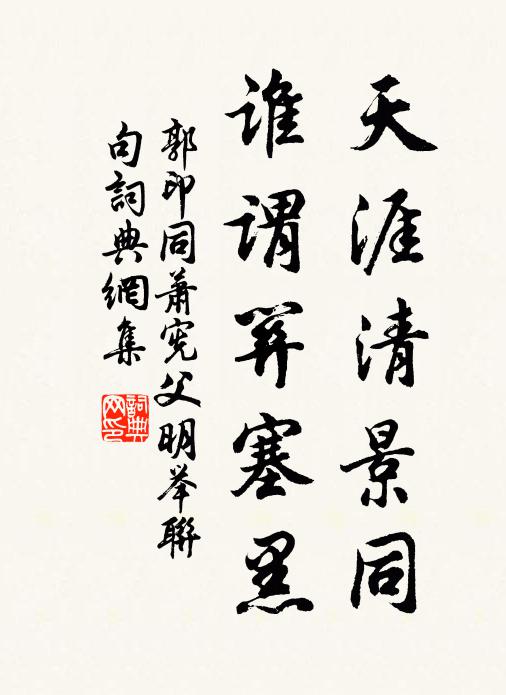 天涯清景同
谁谓关塞黑
郭印同萧宪父明举聯
句詞典網集
詞典
网印